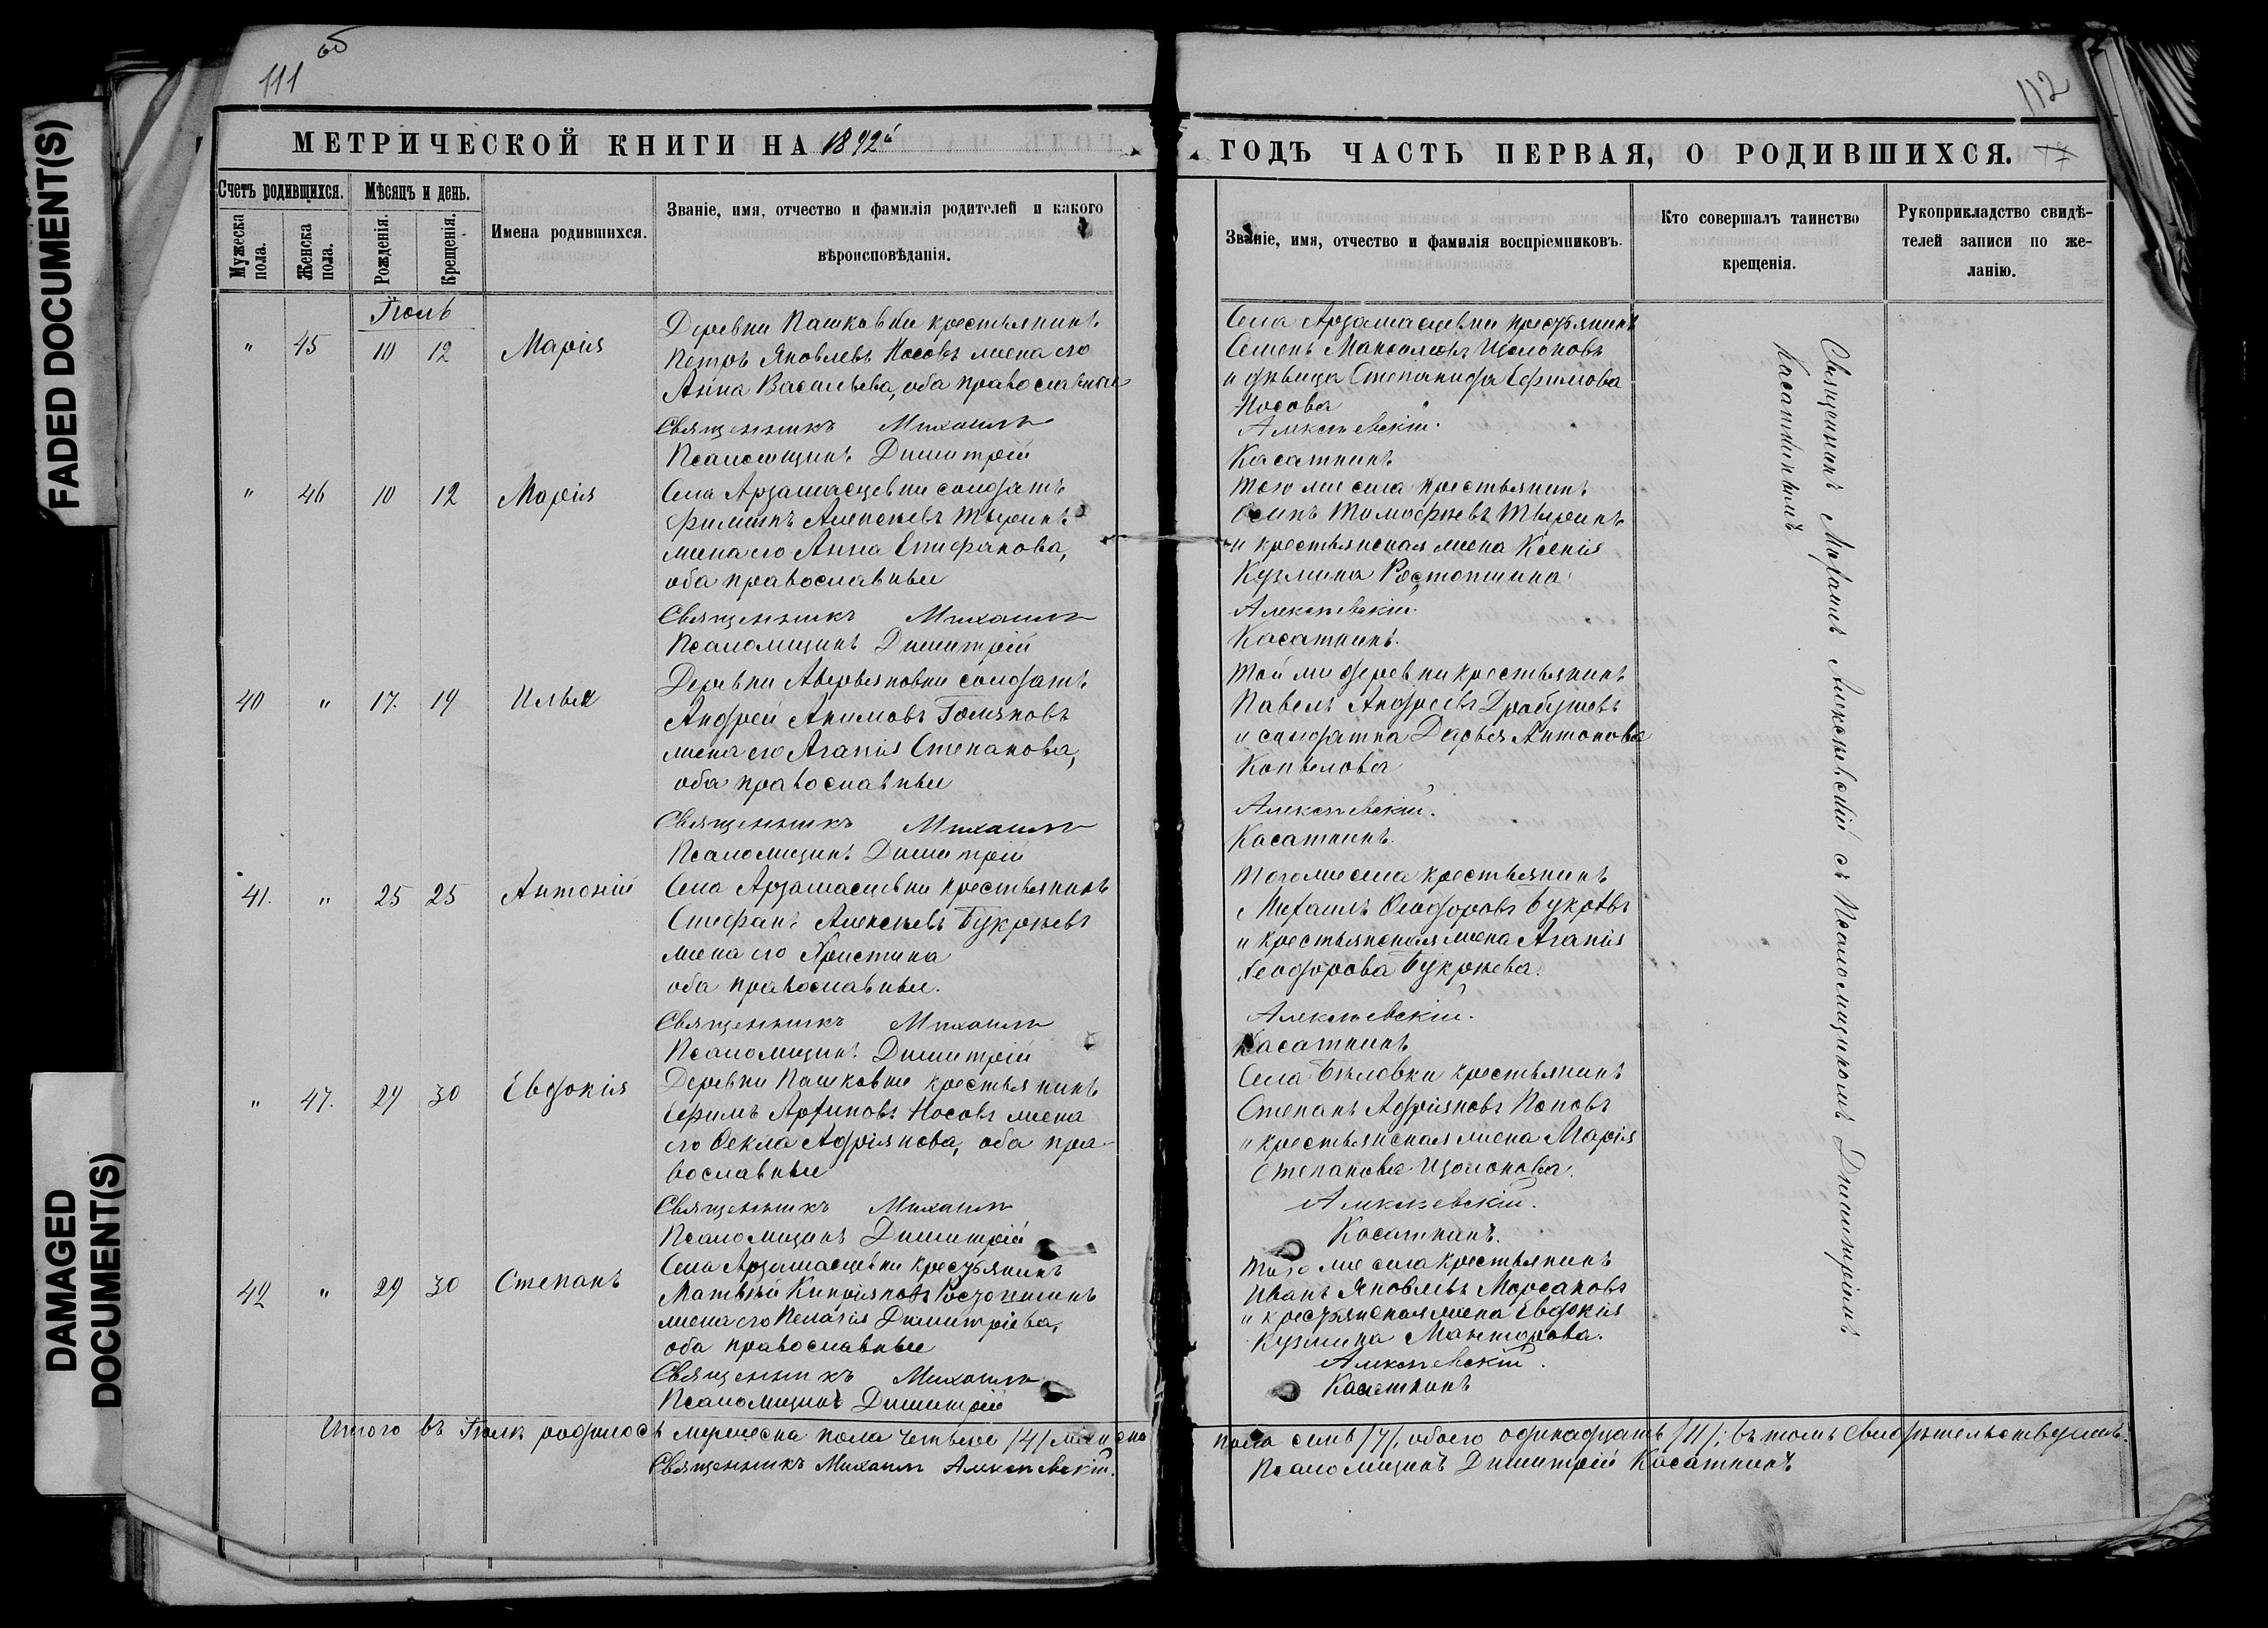 FADED DOCUMENT(S)
DAMAGED
DOCUMENT(S)
111 об
МЕТРИЧЕСКОЙ КНИГИ НА 1892й
Счетъ родившихся.
Мѣсяцъ и день.
Мужеска пола.
Женска пола.
Рожденія.
Крещенія.
Имена родившихся.
Званіе, имя, отчество и фамилія родителей и какого
вѣроисповѣданія.
Іюль
" 45 10 12 Марія
Деревни Пашковки крестьянинъ
Петръ Яковлевъ Носовъ жена его
Анна Васильева, оба православные
Священникъ Михаилъ
Псаломщикъ Димитрій
" 46 10 12 Марія
Села Арзамасцевки солдатъ
Филиппъ Алексѣевъ Тыринъ
жена его Анна Епифанова,
оба православные
Священникъ Михаилъ
Псаломщикъ Димитрій
40 " 17. 19 Илья
Деревни Аверьяновки солдатъ
Андрей Акимовъ
жена его Агапія Степанова,
оба православные
Священникъ Михаилъ
Псаломщикъ Димитрій
41. " 25 25 Антоній
Села Арзамасцевки крестьянинъ
Стефанъ Алексѣевъ Букрѣевъ
жена его Христина
оба православные.
Священникъ Михаилъ
Псаломщикъ Димитрій
" 47. 29 30 Евдокія
Деревни Пашковки крестьянинъ
Ефимъ Архиповъ Носовъ жена
его Ѳекла Адріянова, оба пра-
вославные
Священникъ Михаилъ
Псаломщикъ Димитрій
42 " 29 30 Степанъ
Села Арзамасцевки крестьянинъ
Матвѣй Кипріяновъ Ростопшинъ
жена его Пелагія Димитріева,
оба православные
Священникъ Михаилъ
Псаломщикъ Димитрій
Итого въ Іюлѣ родилось мужеска пола четверо /4/ женска
Священникъ Михаилъ Алексѣевскій.
112
ГОДЪ ЧАСТЬ ПЕРВАЯ, О РОДИВШИХСЯ.
Званіе, имя, отчество и фамилія воспріемниковъ.
Кто совершалъ таинство
крещенія.
Рукоприкладство свидѣ-
телей записи по же-
ланію.
Села Арзамасцевки крестьянинъ
Семенъ Максимовъ Щолоковъ
и дѣвица Степанида Ефимова
Носова
Алексѣевскій.
Касаткинъ
Того же села крестьянинъ
Осипъ Тимофѣевъ Тыринъ
и крестьянская жена Ксенія
Кузмина Ростопшина
Алексѣевскій.
Касаткинъ.
Той же деревни крестьянинъ
Павелъ Андреевъ
и солдатка Дарья Антонова
Копылова
Алексѣевскій.
Касаткинъ.
Того же села крестьянинъ
Михаилъ Ѳеодоровъ Букрѣевъ
и крестьянская жена Агапія
Ѳеодорова Букрѣева.
Алексѣевскій.
Касаткинъ
Села Бѣловки крестьянинъ
Степанъ Адріяновъ Поповъ
и крестьянская жена Марія
Степанова Щолокова.
Алексѣевскій.
Касаткинъ.
Того же села крестьянинъ
Иванъ Яковлевъ
и крестьянская жена Евдокія
Кузмина
Алексѣевскій.
Касаткинъ
Священникъ Михаилъ Алексѣевскій съ Псаломщикомъ Димитріемъ
Касаткинымъ
пола семь /7/, обоего одинадцать /11/; въ томъ свидѣтельствуемъ:
Псаломщикъ Димитрій Касаткинъ